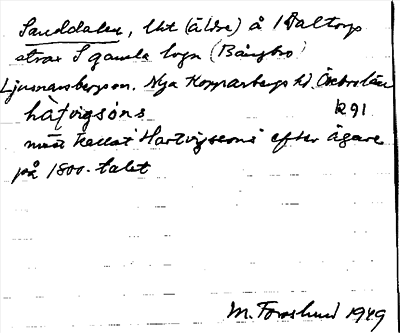 Sanddalen, lht (äldre) å 1 Baltorp
strax S gamla byn (Bångbro)
Ljusnarsbergs sn. Nya Kopparbergs hd. Örebro län
hàtvigsòns k 91
mest kallat "Hartvigsons" efter ägare
på 1800-talet
M. Forslund 1949